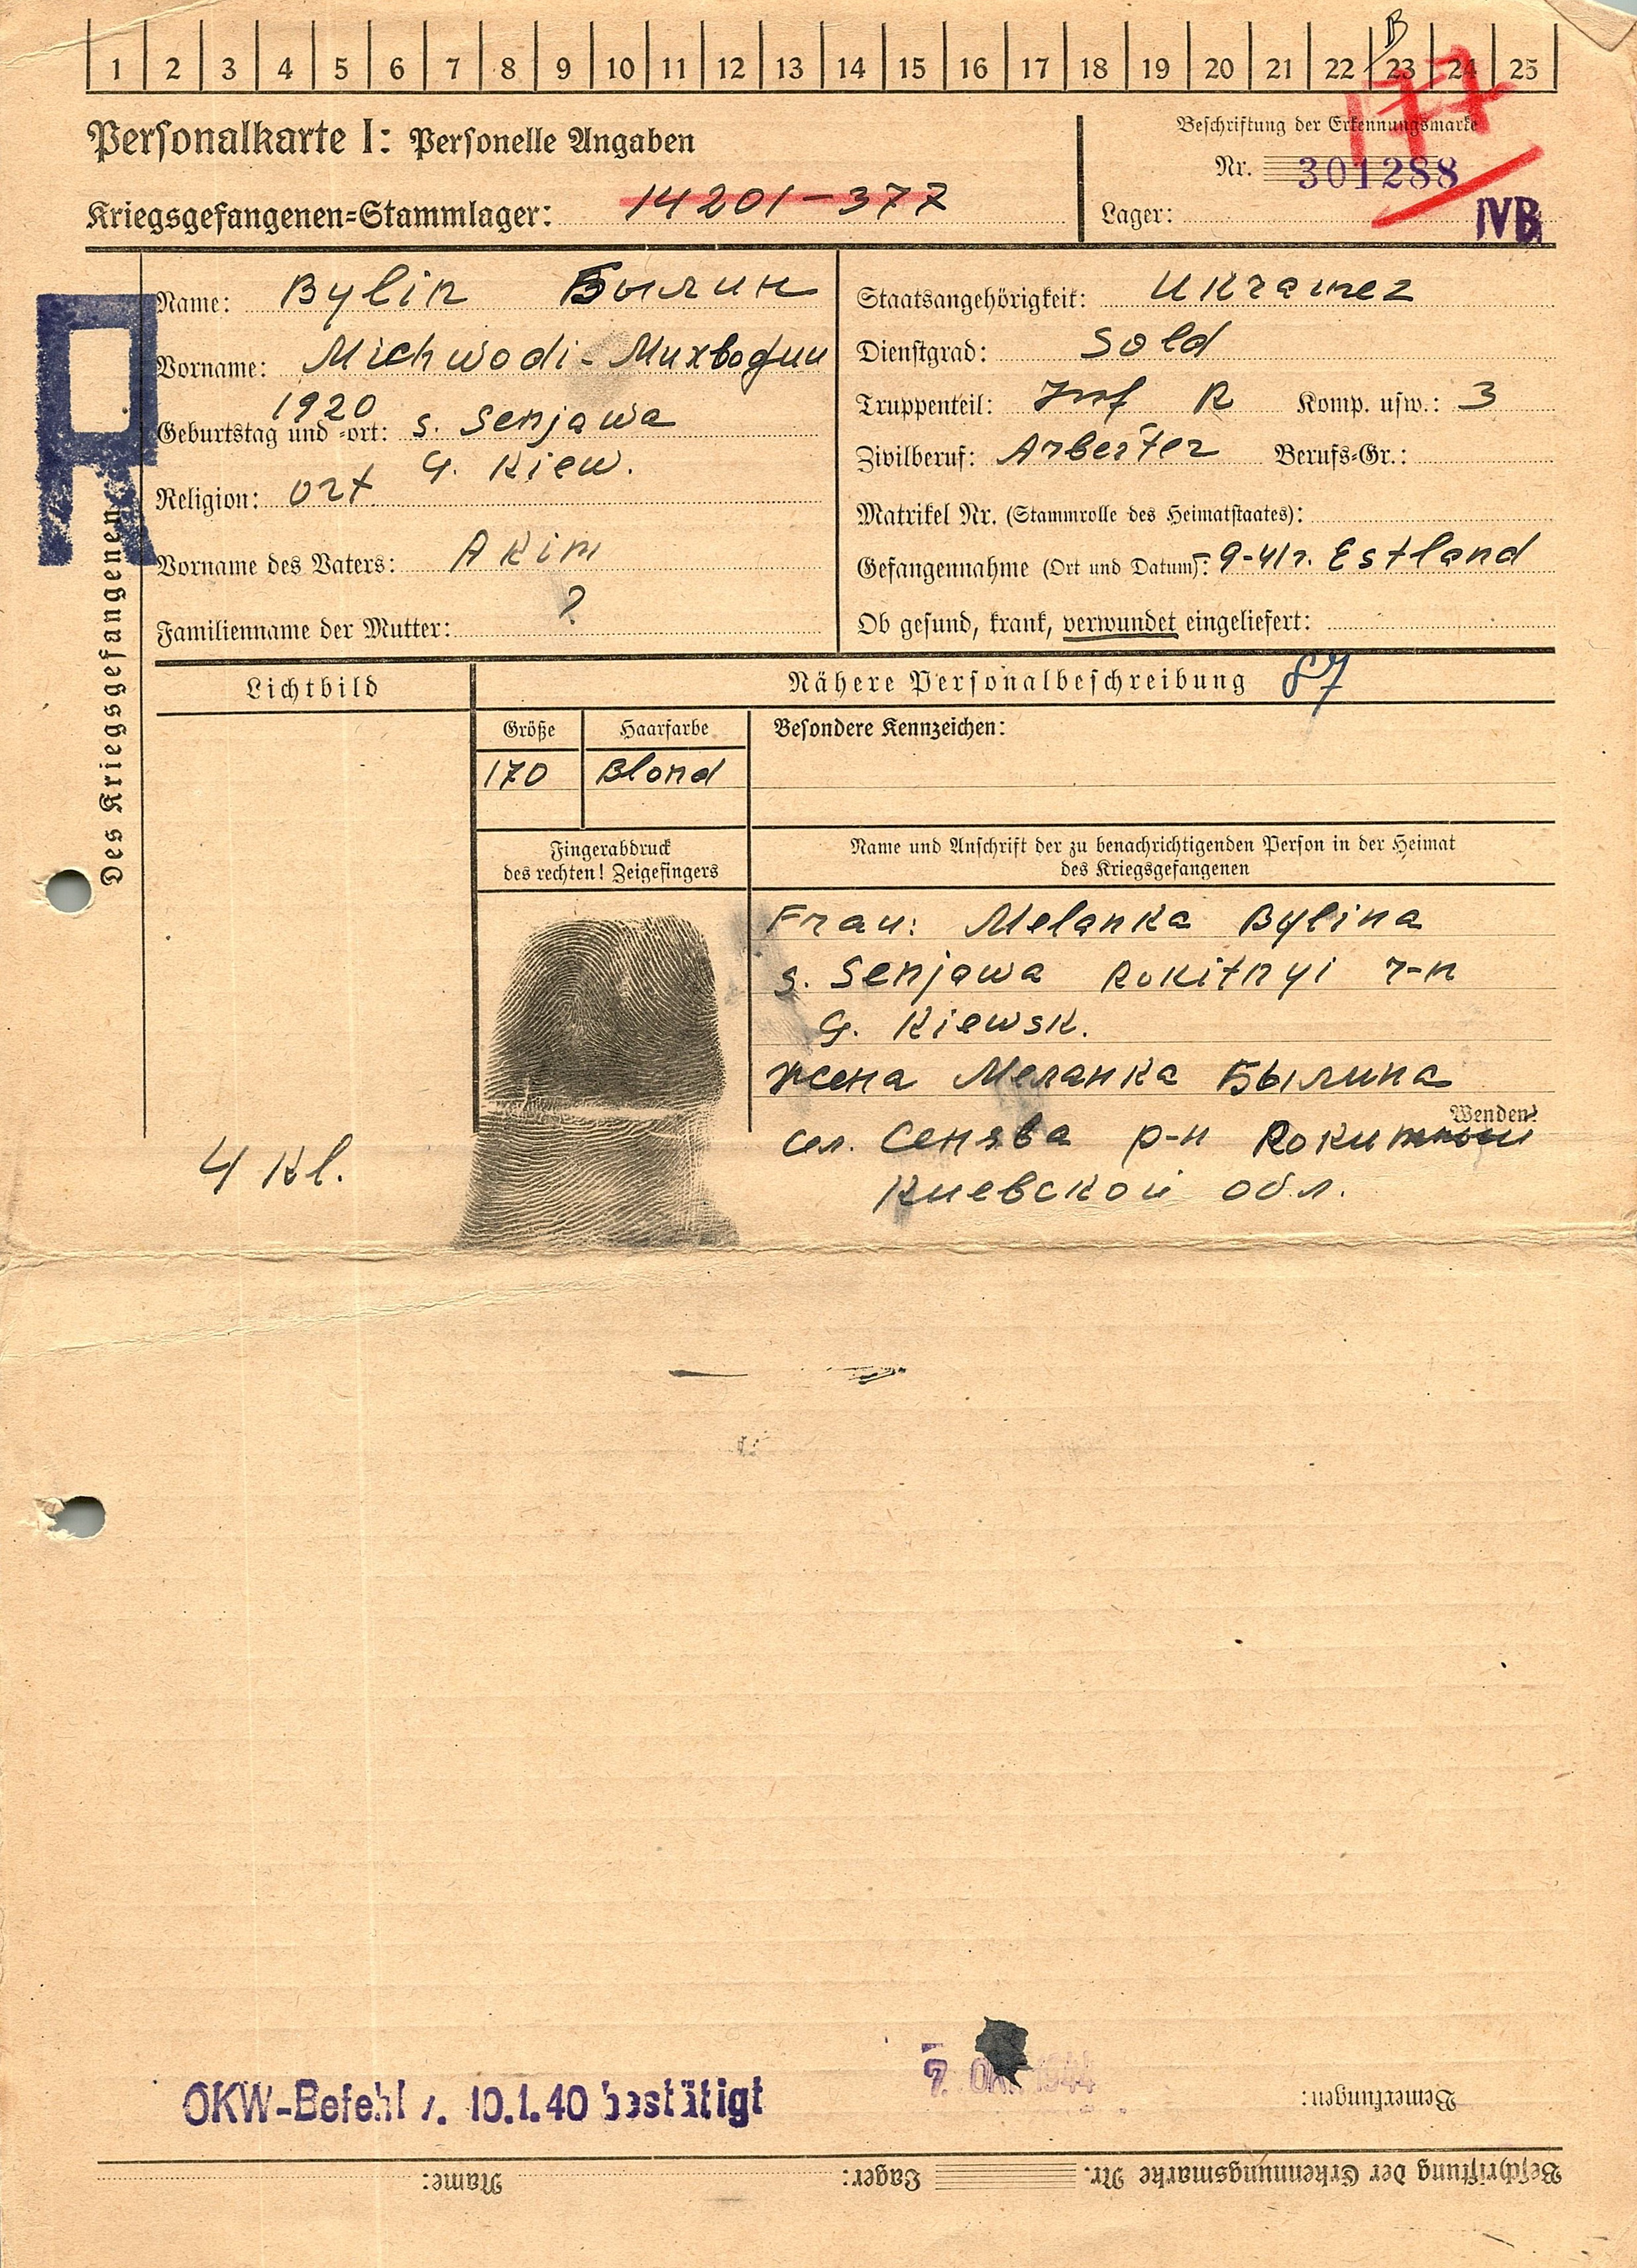 B
1 2 3 4 5 6 7 8 9 10 11 12 13 14 15 16 17 18 19 20 21 22 23 24 25
Personalkarte I: Personelle Angaben
Beschriftung der Erkennungsmarke
Nr. 301288
Kriegsgefangenen=Stammlager: 14201-377
Lager: IVB
Des Kriegsgefangenen
R
Name: Bylin Былин
Vorname: Michwodi - Михводии
1920
Geburtstag und =ort: s. Senjawa
G. Kiew.
Religion: ort
Vorname des Vaters: Akim
Familienname der Mutter: ?
Staatsangehörigkeit: Ukrainez
Dienstgrad: Sold
Truppenteil: Inf R Komp. usw.: 3
Zivilberuf: Arbeiter Berufs=Gr.:
Matrikel Nr. (Stammrolle des Heimatstaates):
Gefangennahme (Ort und Datum): 9-41r. Estland
Ob gesund, krank, verwundet eingeliefert:
Lichtbild
Nähere Personalbeschreibung 87
Größe Haarfarbe Besondere Kennzeichen:
170 Blond
Fingerabdruck
des rechten! Zeigefingers
Name und Anschrift der zu benachrichtigenden Person in der Heimat
des Kriegsgefangenen
Frau: Melanka Bylina
s. Senjawa Rokitnyi r-n
G. Kiewsk.
жена Меланка Былина
Wenden!
сел. Сенява р-н
Киевской обл.
4 Kl.
OKW-Befehl v. 10.1.40 bestätigt
7. Okt. 1944
Bemerkungen:
Beschriftung der Erkennungsmarke Nr. Lager: Name: